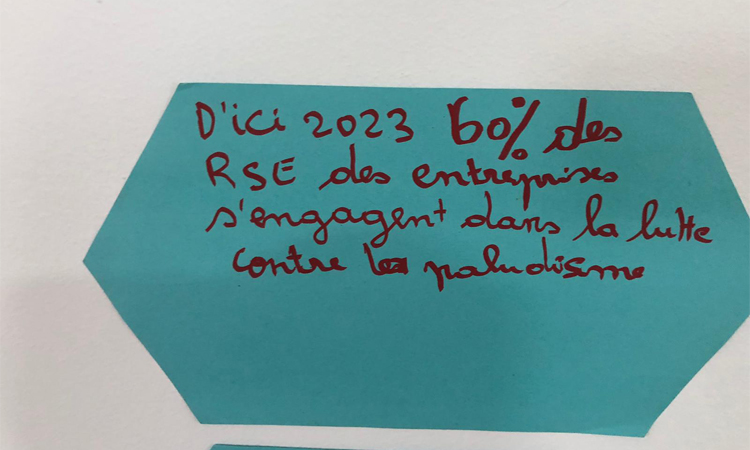 D'ici 2023 60% des
RSE des entreprises
s'engagent dans la lutte
contre le paludisme